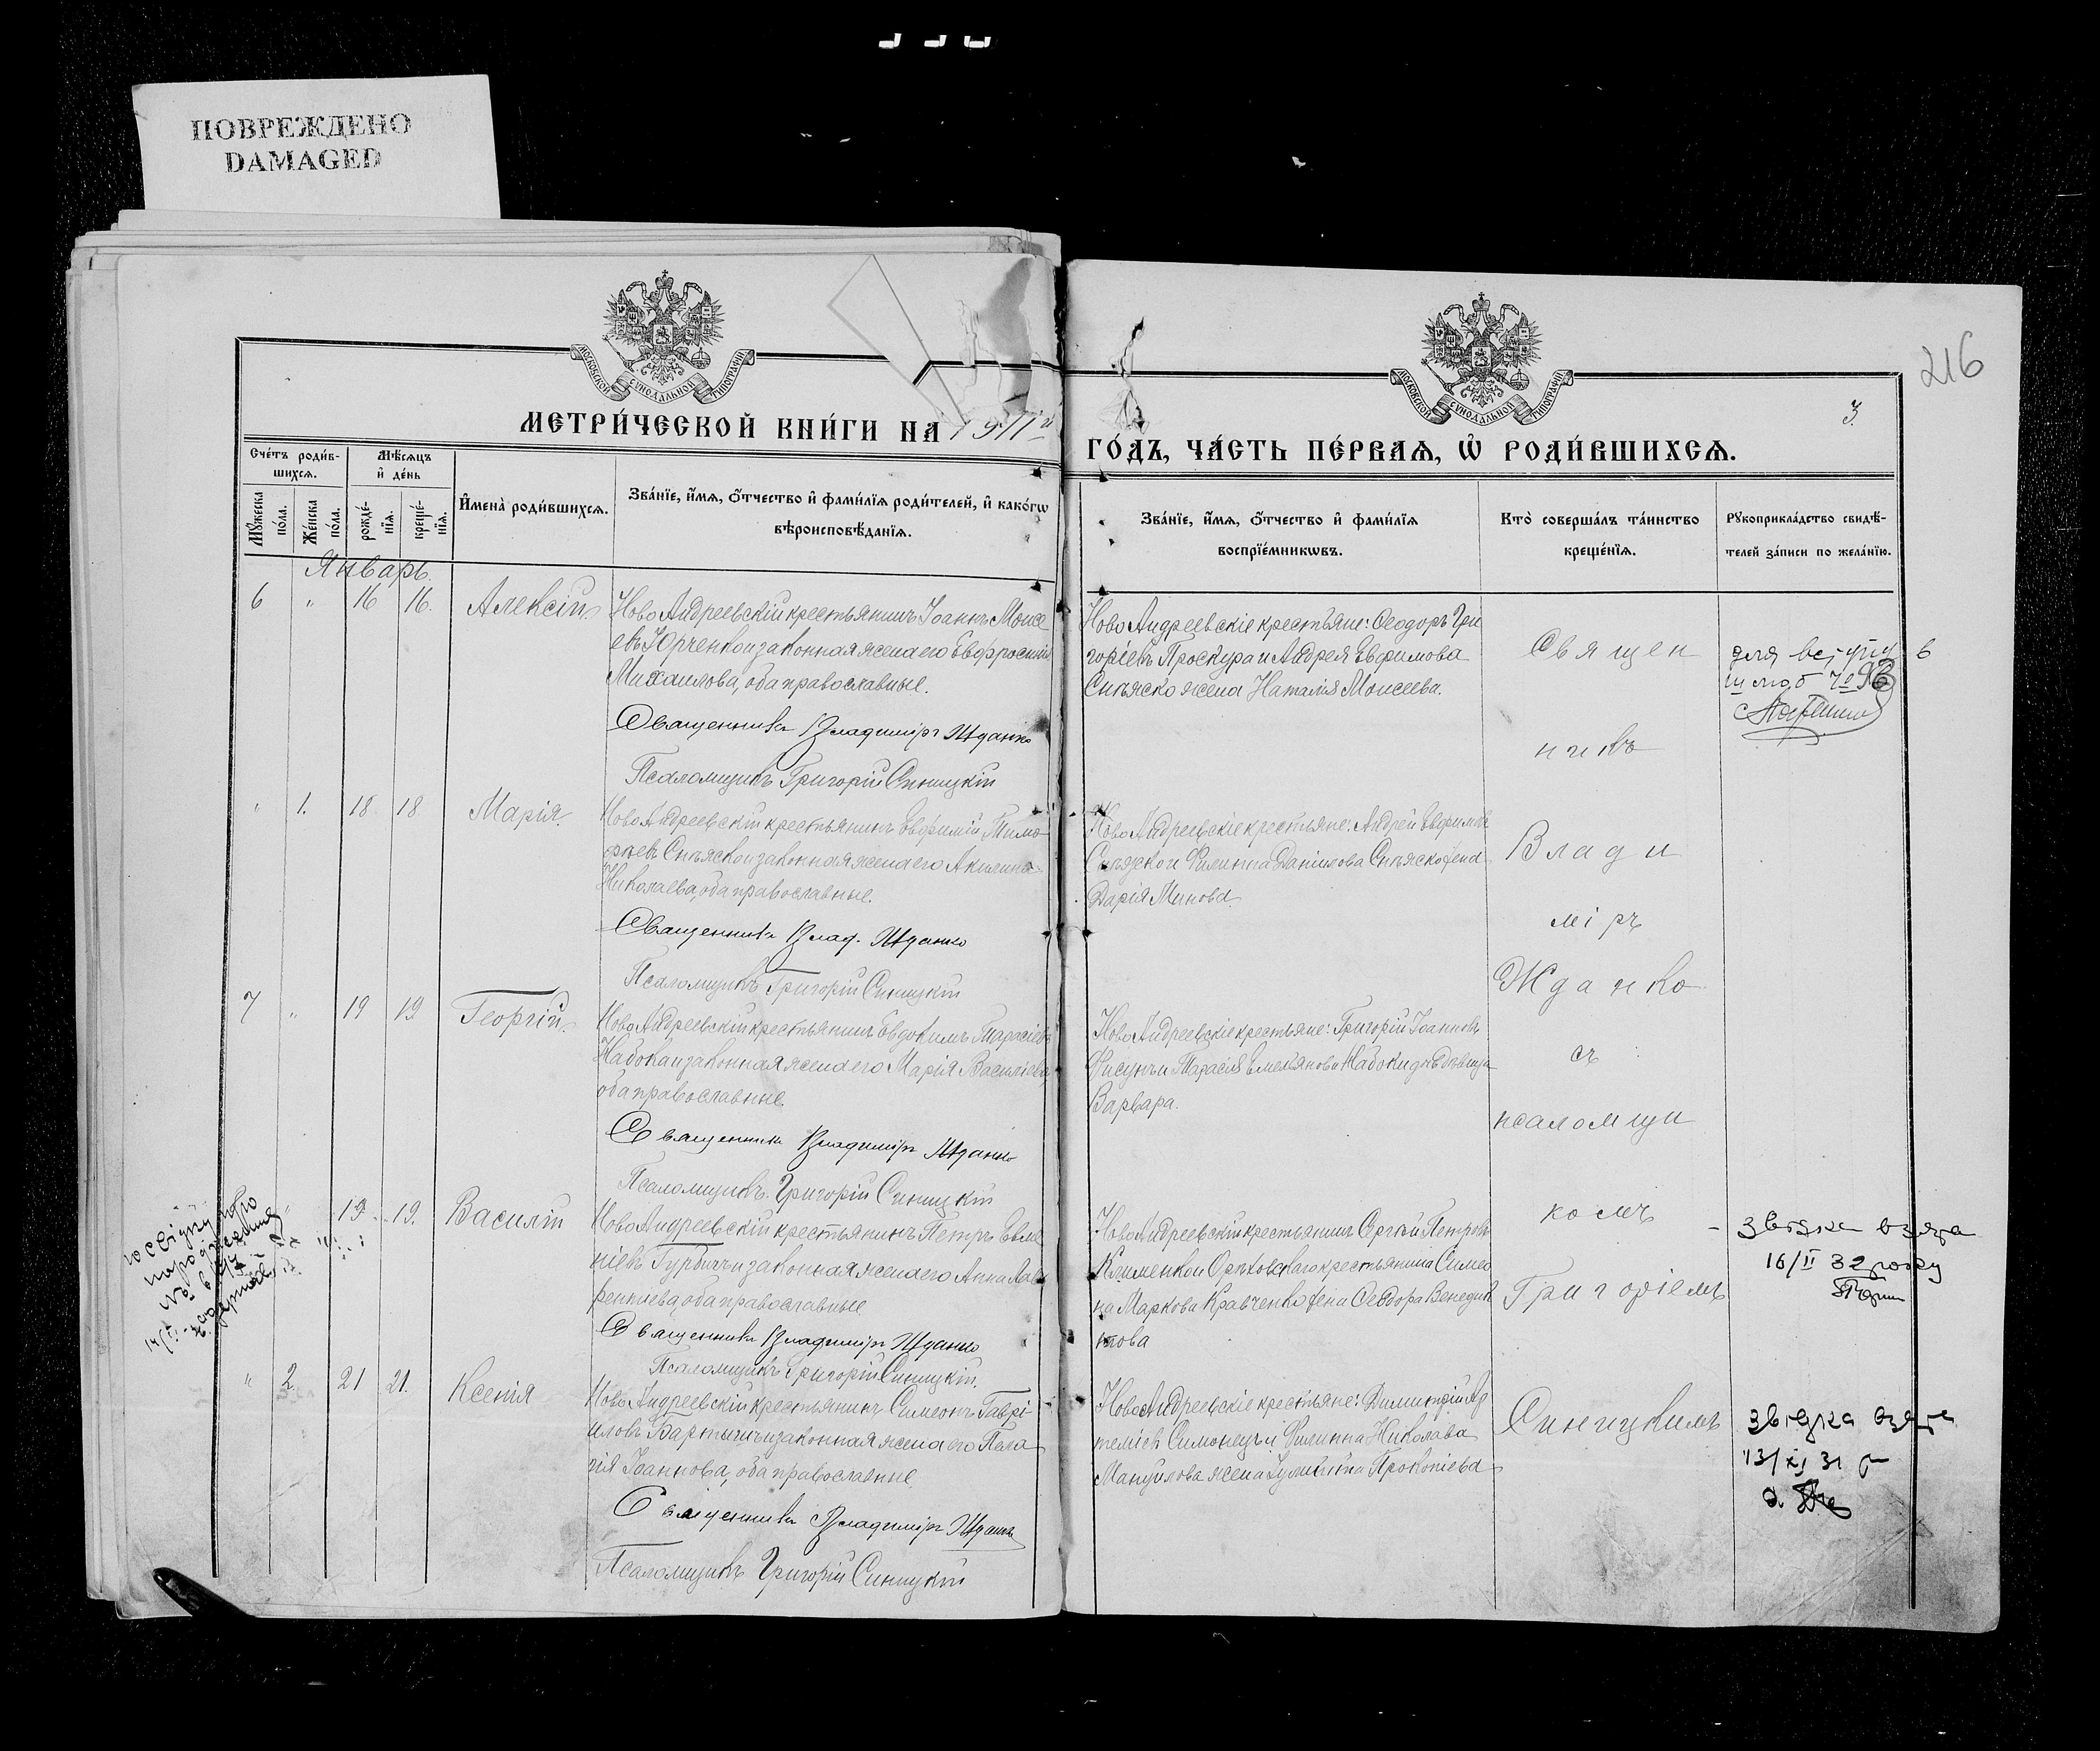 ПОВРЕЖДЕНО
DAMAGED
216
3.
МОСКОВСКОЙ СѴНОДАЛЬНОЙ ТИПОГРАФІИ
МОСКОВСКОЙ СѴНОДАЛЬНОЙ ТИПОГРАФІИ
МЕТРИ́ЧЕСКОЙ КНИ́ГИ НА 1911й
ГО́ДЪ, ЧА́СТЬ ПЕ́РВАѦ, Ѡ҆ РОДИ́ВШИХСѦ.
Сче́тъ роди́в-
шихсѧ.
Мѣ́сѧцъ
и҆ де́нь
Мꙋ́жеска
по́ла.
Же́нска
по́ла.
рожде́-
нїѧ.
креще́-
нїѧ.
И҆мена̀ роди́вшихсѧ.
Зва́нїе, и҆́мѧ, ѻ҆́тчество и҆ фами́лїѧ роди́телей, и҆ како́гѡ
вѣроисповѣ́данїѧ.
Зва́нїе, и҆́мѧ, ѻ҆́тчество и҆ фами́лїѧ
воспрїе́мникѡвъ.
Кто̀ соверша́лъ та́инство
креще́нїѧ.
Рꙋкоприкла́дство свидѣ́-
телей за́писи по жела́нїю.
Январь.
6 " 16 16. Алексій.
НовоАндреевскій крестьянинъ Іоаннъ Моисе
евъ Юрченко и законная жена его Евфросинія
Михаилова, оба православные.
Священникъ Владиміръ Жданко
Псаломщикъ Григорій Синицкій
НовоАндреевскіе крестьяне: Ѳеодоръ Гри
горіевъ Проскура и Андрея Евфимова
Сиѣяско жена Наталія Моисеева.
" 1. 18 18 Марія.
НовоАндреевскій крестьянинъ Евфимій Тимо
ѳеевъ Сиѣяско и законная жена его Акилина
Николаева, оба православные.
Священникъ Влад. Жданко
Псаломщикъ Григорій Синицкій
НовоАндреевскіе крестьяне: Андрей Евфимовъ
Сиѣяско и Филиппа Даніилова Сиѣяско жена
Дарія Минова.
7 " 19 19 Георгій.
НовоАндреевскій крестьянинъ Евдокимъ Тарасіевъ
Набока и законная жена его Марія Василіева,
оба православные.
Священникъ Владиміръ Жданко
Псаломщикъ Григорій Синицкій
НовоАндреевскіе крестьяне: Григорій Іоанновъ
Фисунъ и Тарасія Емельянова Набоки дѣвица
Варвара.
" 19. 19. Василій
НовоАндреевскій крестьянинъ Петръ Евме
ніевъ Гурбичъ и законная жена его Анна Лав
рентіева, оба православные
Священникъ Владиміръ Жданко
Псаломщикъ Григорій Синицкій.
НовоАндреевскій крестьянинъ Сергѣй Петровъ
Клименко и Орѣховскаго крестьянина Симео
на Маркова Кравченко жена Ѳеодора Венедик
това
" 2. 21 21. Ксенія
НовоАндреевскій крестьянинъ Симеонъ Гаврі
иловъ Бартышъ и законная жена его Пела
гія Іоаннова, оба православные.
Священникъ Владиміръ Жданко
Псаломщикъ Григорій Синицкій
НовоАндреевскіе крестьяне: Димитрій Ар
теміевъ Симонецъ и Филиппа Николаева
Мануйлова жена Іулитта Прокопіева
Священ
никъ
Влади
міръ
Жданко
съ
псаломщи
комъ
Григоріемъ
Синицкимъ
для
16/II 32 року
13/XI 31 р